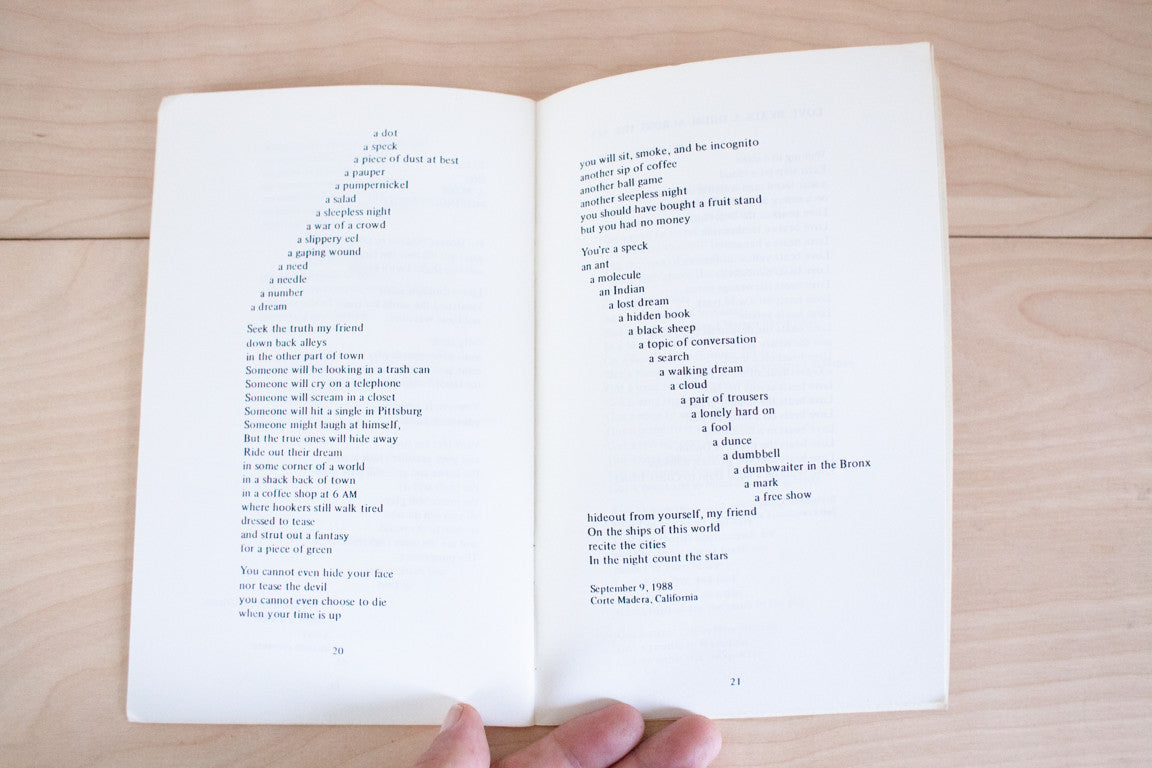 a dot
a speck
a piece of dust at best
a pauper
a pumpernickel
a salad
a sleepless night
a war of a crowd
a slippery eel
a gaping wound
a need
a needle
a number
a dream
Seek the truth my friend
down back alleys
in the other part of town
Someone will be looking in a trash can
Someone will cry on a telephone
Someone will scream in a closet
Someone will hit a single in Pittsburg
Someone might laugh at himself,
But the true ones will hide away
Ride out their dream
in some corner of a world
in a shack back of town
in a coffee shop at 6 AM
where hookers still walk tired
dressed to tease
and strut out a fantasy
for a piece of green
You cannot even hide your face
nor tease the devil
you cannot even choose to die
when your time is up
20
you will sit, smoke, and be incognito
another sip of coffee
another ball game
another sleepless night
you should have bought a fruit stand
but you had no money
You're a speck
an ant
a molecule
an Indian
a lost dream
a hidden book
a black sheep
a topic of conversation
a search
a walking dream
a cloud
a pair of trousers
a lonely hard on
a fool
a dunce
a dumbbell
a dumbwaiter in the Bronx
a mark
a free show
hideout from yourself, my friend
On the ships of this world
recite the cities
In the night count the stars
September 9, 1988
Corte Madera, California
21